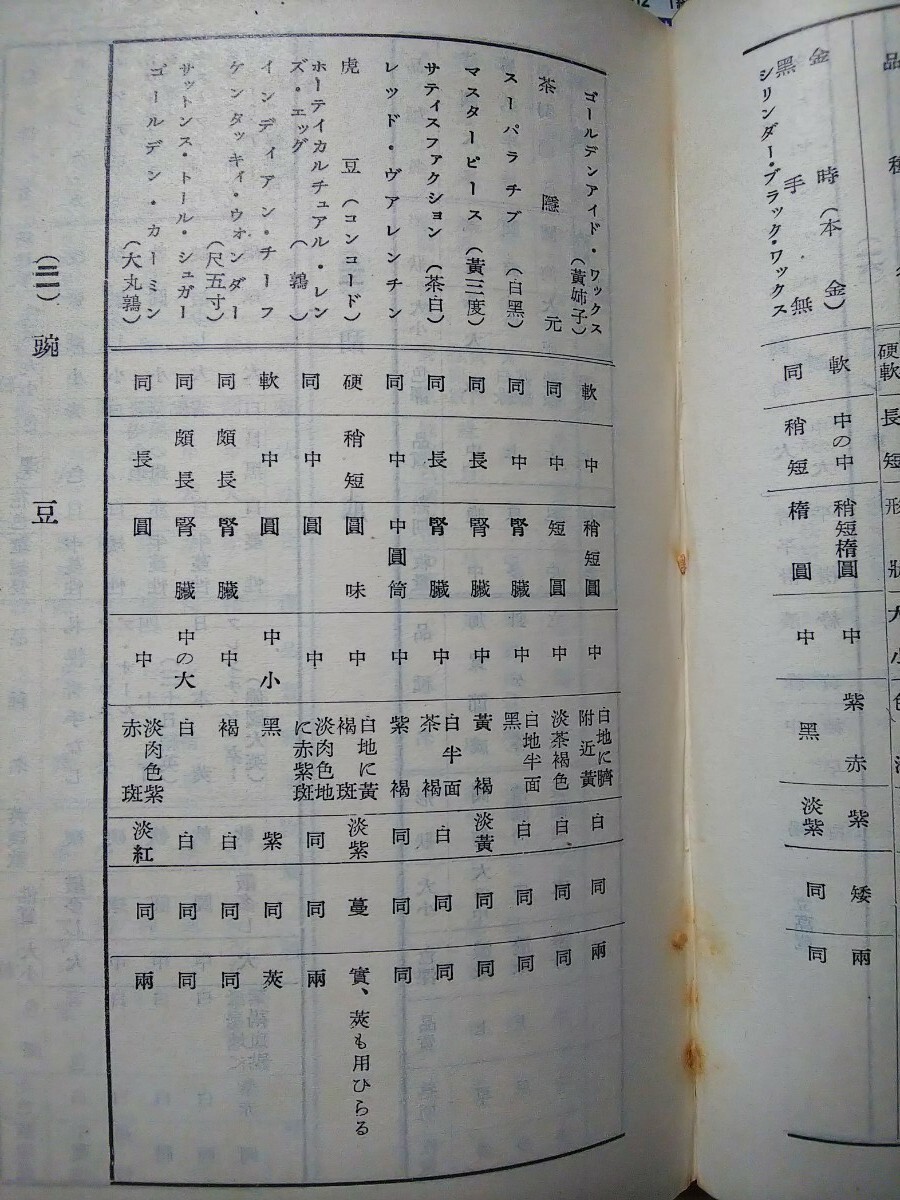 品種
硬軟 長短 形狀 大小 色
金時（本金） 軟 中の中 稍短楕圓 中 紫赤 紫 矮 兩
黑手無
シリンダー・ブラック・ワックス 同 稍短 楕圓 中 黑 淡紫 同 同
ゴールデンアイド・ワックス（黃姉子） 軟 中 稍短圓 中 白地に臍附近黃 白 同 兩
茶隱元 同 中 短圓 中 淡茶褐色 白 同 同
スーパラチブ（白黑） 同 中 腎臟 中 白地半面黑 白 同 同
マスターピース（黃三度） 同 長 腎臟 中 黃褐 淡黃 同 同
サティスファクション（茶白） 同 長 腎臟 中 白半面茶褐 白 同 同
レッド・ヴアレンチン 同 中 中圓筒 中 紫褐 同 同 同
虎豆（コンコード） 硬 稍短 圓味 中 白地に黃褐斑 淡紫 蔓 實、莢も用ひらる
ホーテイカルチュアル・レンズ・エッグ（鶉） 同 中 圓 中 淡肉色地に赤紫斑 同 同 兩
インディアン・チーフ 軟 中 圓 中小 黑 紫 同 莢
ケンタッキィ・ウォンダー（尺五寸） 同 頗長 腎臟 中 褐 白 同 同
サットンス・トール・シュガー 同 頗長 腎臟 中の大 白 白 同 同
ゴールデン・カーミン（大丸鶉） 同 長 圓 中 淡肉色紫赤斑 淡紅 同 兩
（三一）豌豆